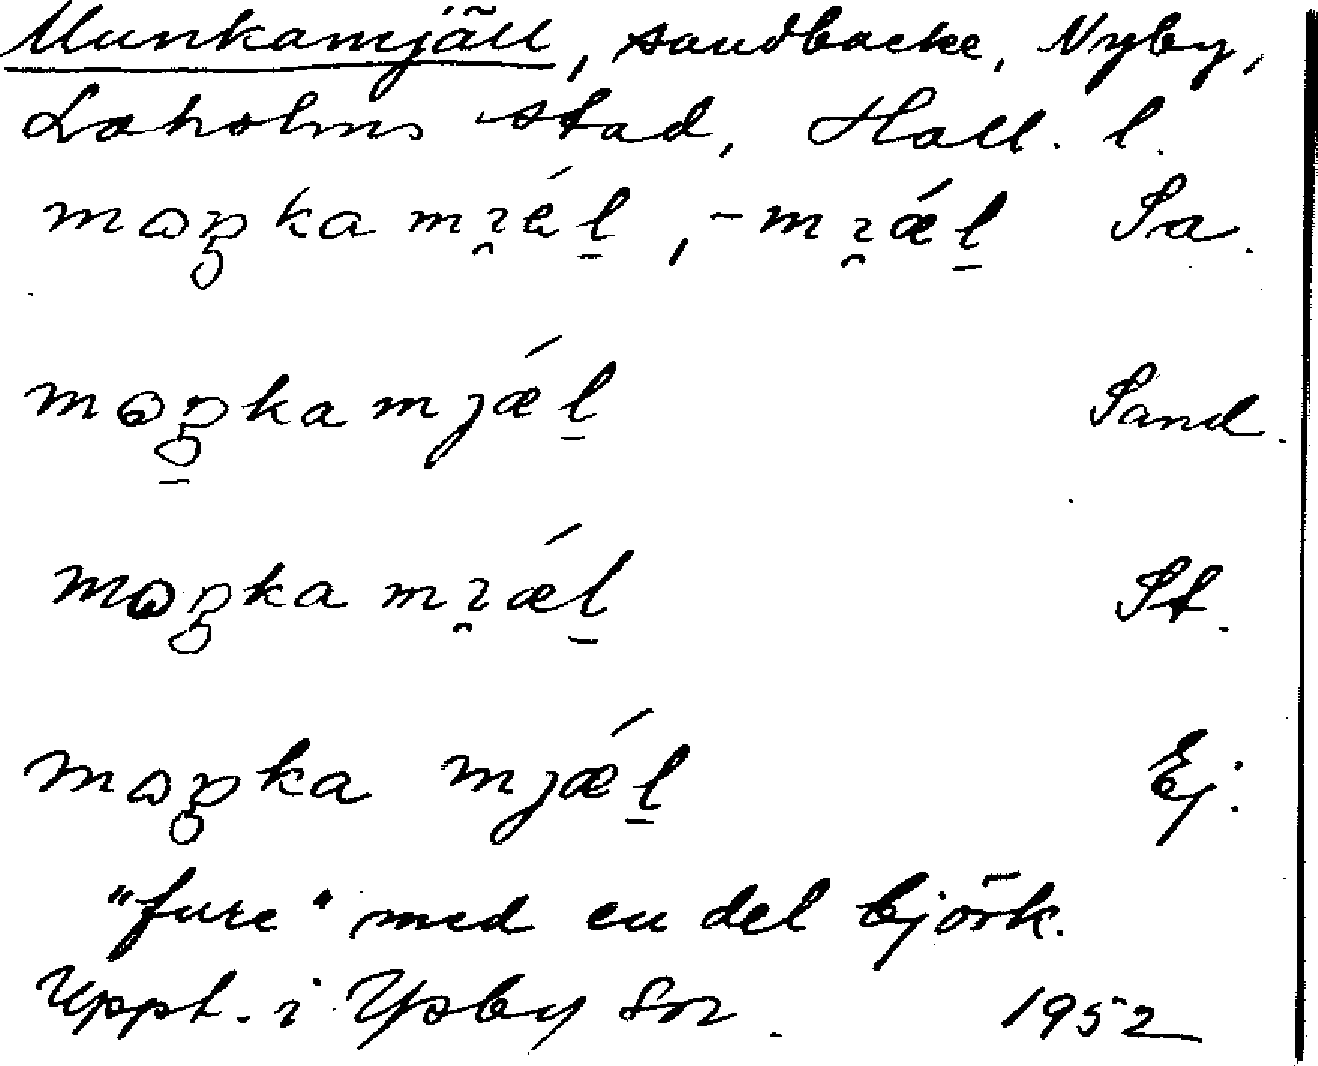 Munkamjäll, sandbacke, Nyby,
Laholms stad, Hall. l.
mɷᶇkamɪ̯éḻ, -mɪ̯ǽḻ Sa.
mɷᶇkamjǽḻ Sand.
mɷᶇkamɪ̯ǽḻ St.
mɷᶇka mjǽḻ Ej.
"fure" med en del björk.
Uppt. i Ysby sn. 1952